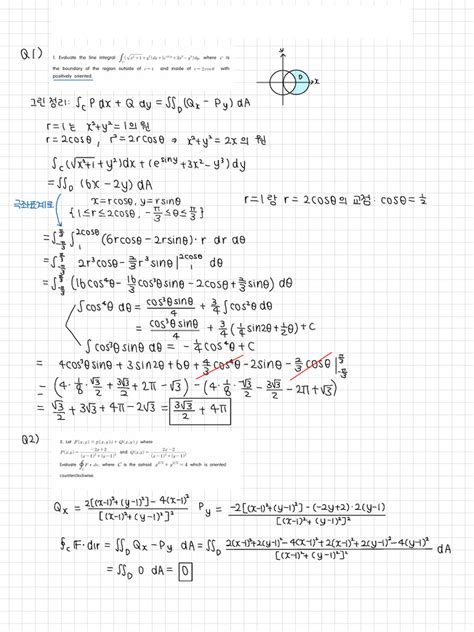 Q1)
1. Evaluate the line integral ∫_C (√(x²+1)+y²)dx+(e^{siny}+3x²-y³)dy, where C is
the boundary of the region outside of r=1 and inside of r=2cosθ with
positively oriented.
y
D
x
그린 정리: ∫_C P dx + Q dy = ∬_D (Qx - Py) dA
r=1은 x²+y²=1의 원
r=2cosθ, r²=2rcosθ → x²+y²=2x의 원
∫_C (√(x²+1)+y²)dx + (e^{siny}+3x²-y³)dy
=∬_D (6x-2y) dA
극좌표계로
x=rcosθ, y=rsinθ
{1≤r≤2cosθ, -π/3≤θ≤π/3}
r=1랑 r=2cosθ의 교점: cosθ=1/2
=∫_{-π/3}^{π/3} ∫_1^{2cosθ} (6rcosθ-2rsinθ)·r dr dθ
=∫_{-π/3}^{π/3} 2r³cosθ-2/3r³sinθ|_1^{2cosθ} dθ
=∫_{-π/3}^{π/3} (16cos⁴θ-16/3cos³θsinθ-2cosθ+2/3sinθ) dθ
∫cos⁴θ dθ = cos³θsinθ/4 + 3/4∫cos²θ dθ
= cos³θsinθ/4 + 3/4(1/4sin2θ+1/2θ)+C
∫cos³θsinθ dθ = -1/4cos⁴θ+C
= 4cos³θsinθ+3sin2θ+6θ+4/3cos⁴θ-2sinθ-2/3cosθ|_{-π/3}^{π/3}
= (4·1/8·√3/2+3√3/2+2π-√3)-(4·1/8·-√3/2-3√3/2-2π+√3)
= √3/2+3√3+4π-2√3 = 3√3/2+4π
Q2)
2. Let F(x,y)=P(x,y)i+Q(x,y)j where
P(x,y)=(-2y+2)/((x-1)²+(y-1)²) and Q(x,y)=(2x-2)/((x-1)²+(y-1)²).
Evaluate ∮_C F·dr, where C is the astroid x^{2/3}+y^{2/3}=4 which is oriented
counterclockwise.
Qx = (2[(x-1)²+(y-1)²]-4(x-1)²)/[(x-1)²+(y-1)²]² Py = (-2[(x-1)²+(y-1)²]-(-2y+2)·2(y-1))/[(x-1)²+(y-1)²]²
∮_C F·dr = ∬_D Qx-Py dA = ∬_D (2(x-1)²+2(y-1)²-4(x-1)²+2(x-1)²+2(y-1)²-4(y-1)²)/[(x-1)²+(y-1)²]² dA
=∬_D 0 dA = 0